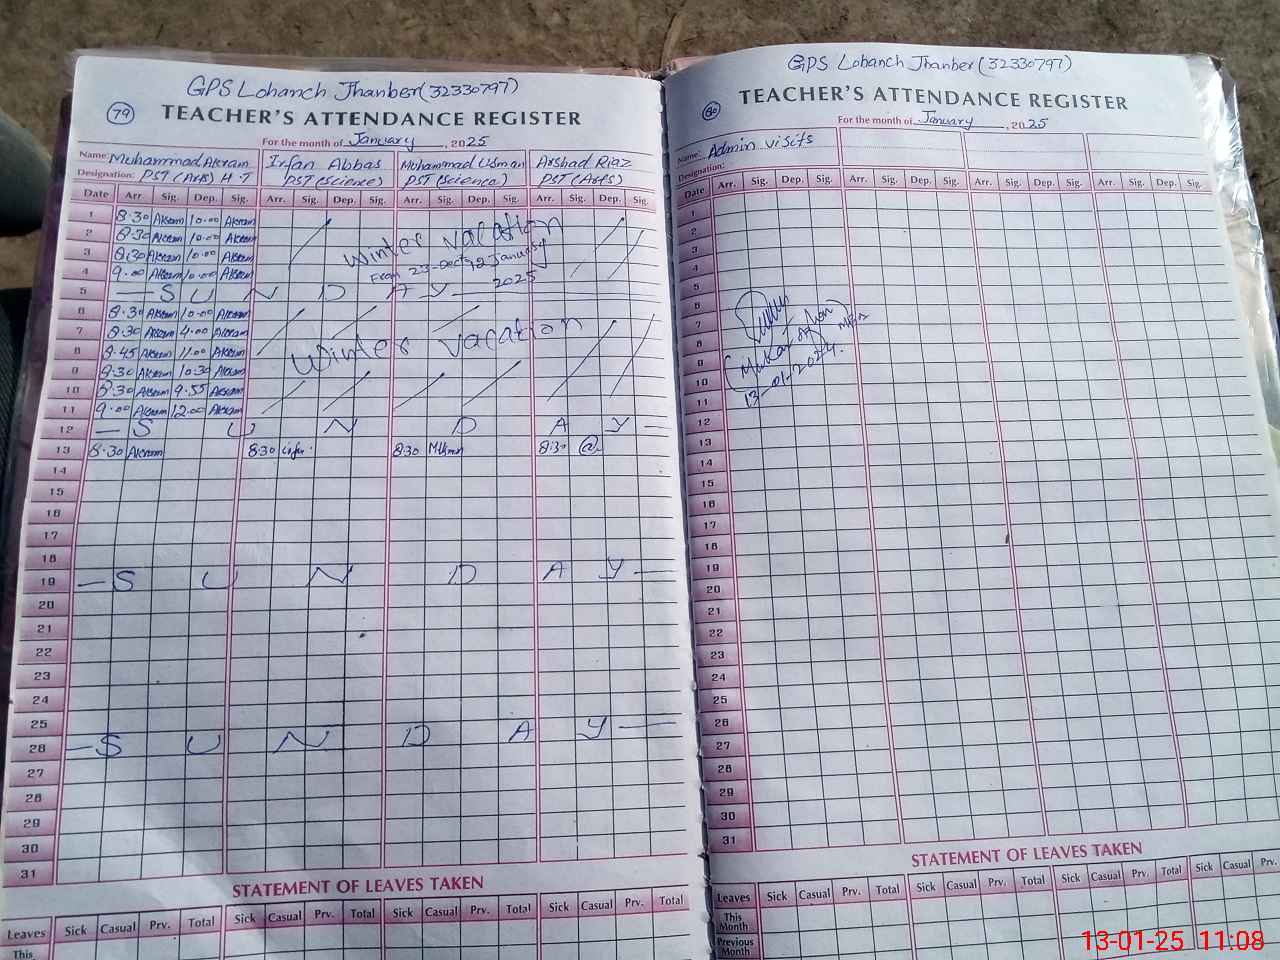 GPS Lohanch Jhanber (32330797)
79 TEACHER'S ATTENDANCE REGISTER
For the month of January, 2025
Name: Muhammad Akram Irfan Abbas Muhammad Usman Arshad Riaz
Designation: PST (Arts) H.T PST (Science) PST (Science) PST (Arts)
Date Arr. Sig. Dep. Sig. Arr. Sig. Dep. Sig. Arr. Sig. Dep. Sig. Arr. Sig. Dep. Sig.
1 8.30 Akram 10.00 Akram
2 8.30 Akram 10.00 Akram Winter vacation
3 8.30 Akram 10.00 Akram From 23-Dec to 12 January
4 9.00 Akram 10.00 Akram 2025
5 — S U N D A Y —
6 8.30 Akram 10.00 Akram
7 8.30 Akram 9.00 Akram Winter vacation
8 8.45 Akram 11.00 Akram
9 8.30 Akram 10.30 Akram
10 8.30 Akram 9.55 Akram
11 9.00 Akram 12.00 Akram
12 — S U N D A Y —
13 8.30 Akram 8.30 Irfan 8.30 MUsman 8.30
14
15
16
17
18
19 — S U N D A Y —
20
21
22
23
24
25
26 — S U N D A Y —
27
28
29
30
31
STATEMENT OF LEAVES TAKEN
Leaves Sick Casual Prv. Total Sick Casual Prv. Total Sick Casual Prv. Total Sick Casual Prv. Total
This
GPS Lohanch Jhanber (32330797)
80 TEACHER'S ATTENDANCE REGISTER
For the month of January, 2025
Name: Admin visits
Designation:
Date Arr. Sig. Dep. Sig. Arr. Sig. Dep. Sig. Arr. Sig. Dep. Sig. Arr. Sig. Dep. Sig.
1
2
3
4
5
6
7
8
9
10
11
13-01-2024.
12
13
14
15
16
17
18
19
20
21
22
23
24
25
26
27
28
29
30
31
STATEMENT OF LEAVES TAKEN
Leaves Sick Casual Prv. Total Sick Casual Prv. Total Sick Casual Prv. Total Sick Casual Prv.
This Month
Previous Month
13-01-25 11:08